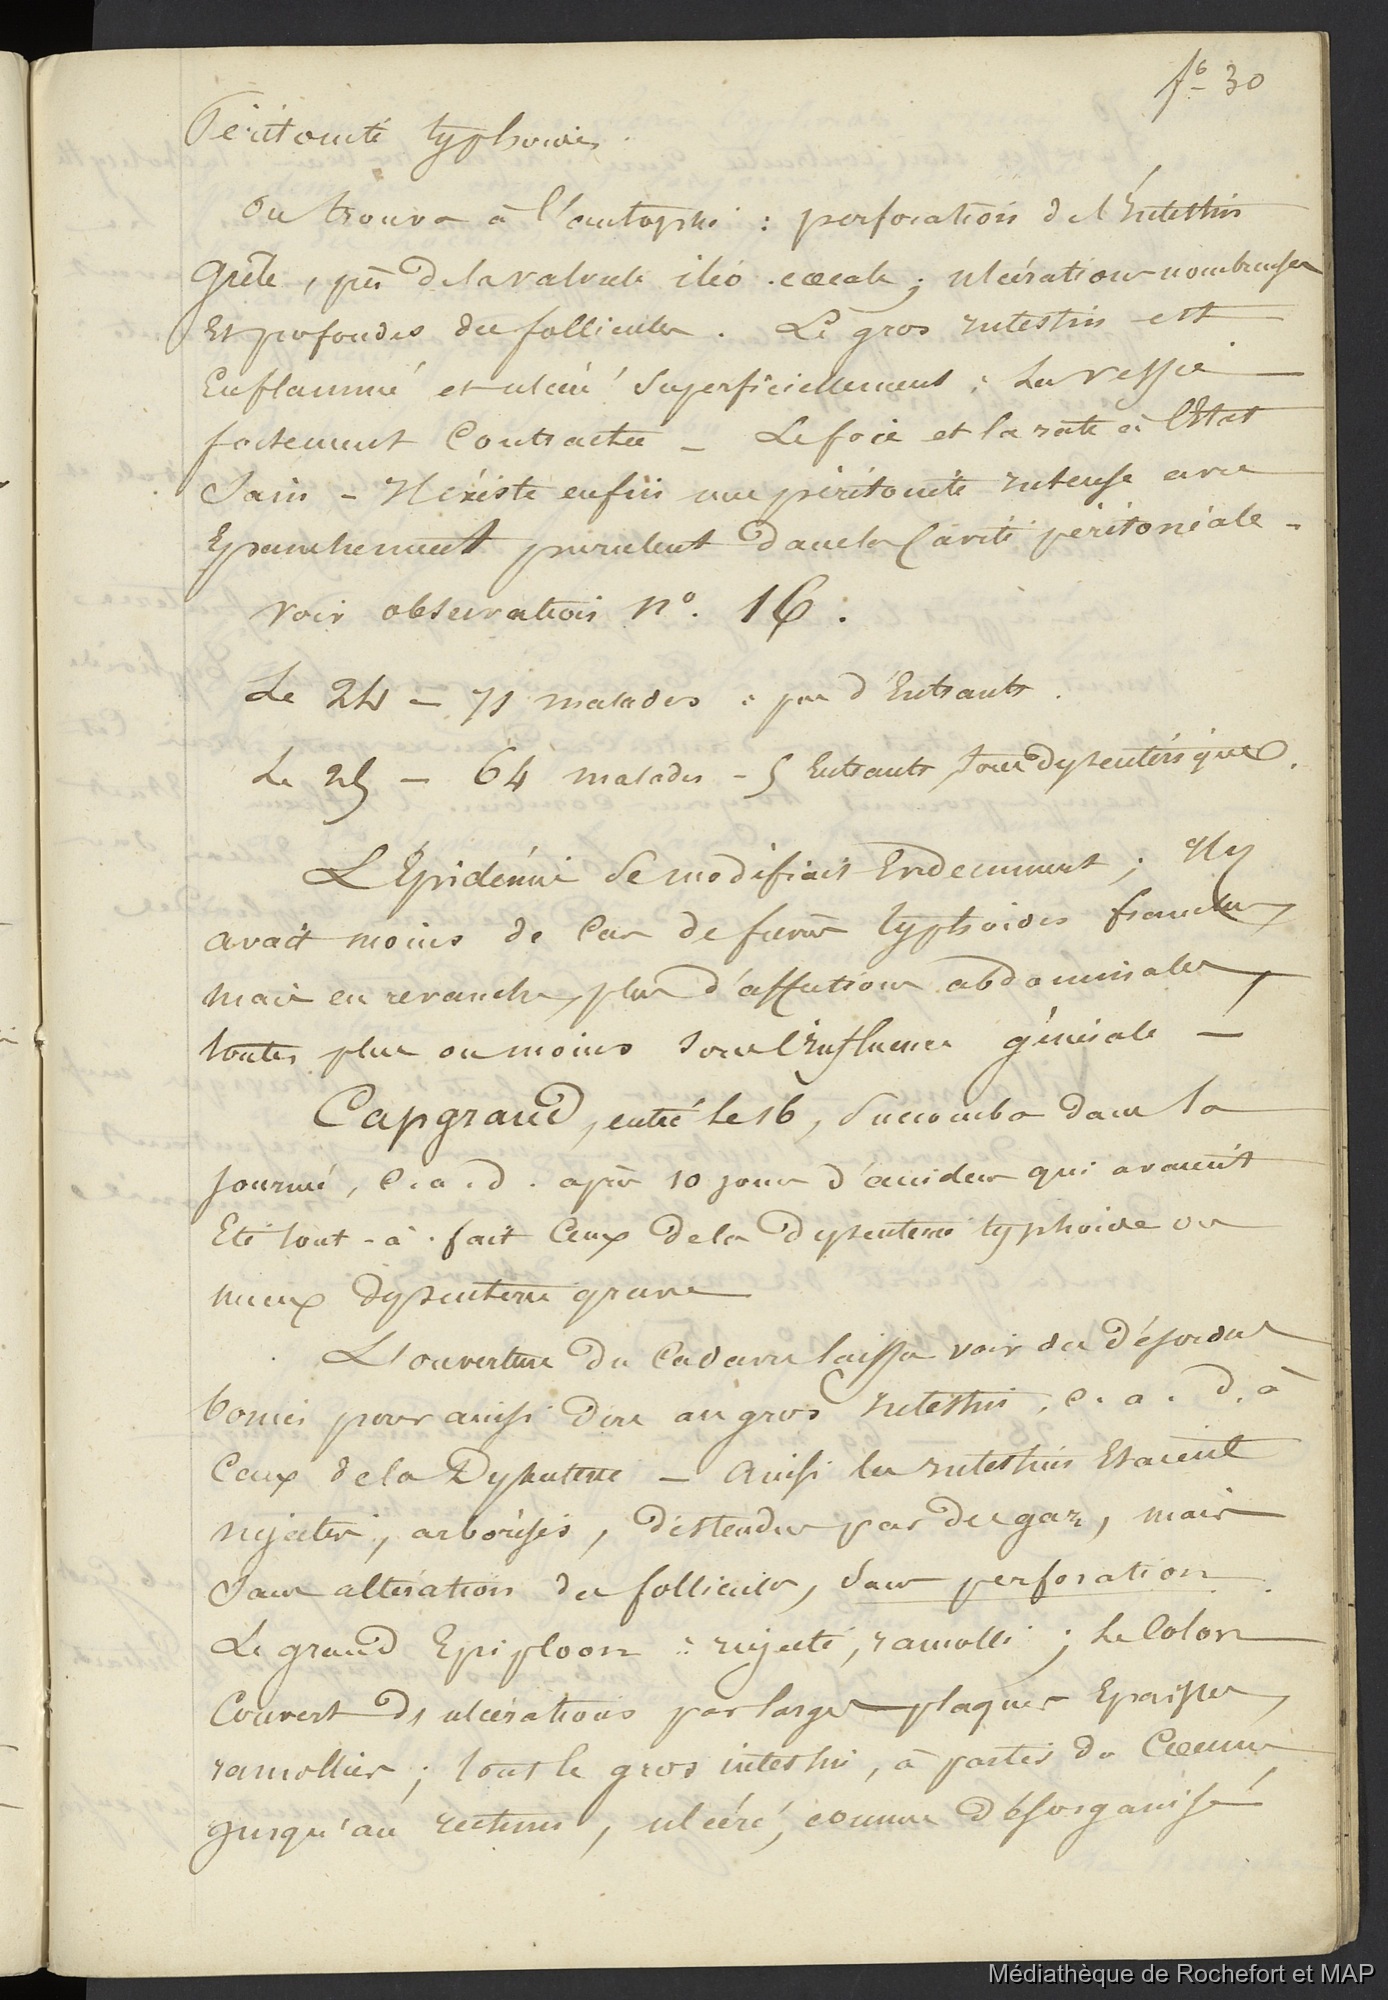 fo 30
Péritonite typhoïde.
On trouva à l'autopsie : perforation de l'Intestin
Grêle, près de la valvule iléo-cœcale ; ulcérations nombreuses
Et profondes des follicules. Le gros intestin est
Enflammé et ulcéré superficiellement ; La vessie
fortement Contractée — Le foie et la rate à l'Etat
Sain — Il existe enfin une péritonite intense avec
Epanchement purulent dans la Cavité péritonéale —
voir observation n°. 16.
Le 24 — 71 malades : pas d'Entrants.
Le 25 — 64 malades — 5 Entrants, tous dysentériques.
L'Epidémie se modifiait Evidemment ; Il y
avait moins de Cas de fièvres typhoïdes franches,
mais en revanche, plus d'affections abdominales,
toutes plus ou moins sous l'influence générale —
Capgrand, entré le 16, Succomba dans la
journée, c. a. d. après 10 jours d'accidens qui avaient
Eté tout-à-fait Ceux de la dysenterie typhoïde ou
mieux dysenterie grave
L'ouverture du Cadavre laissa voir des désordres
bornés pour ainsi dire au gros intestin, c. a. d. à
Ceux de la Dysenterie — Ainsi les intestins Etaient
injectés, arborisés, distendus par des gaz, mais
Sans altération des follicules, Sans perforation.
Le grand Epiploon : injecté, ramolli ; Le Colon
Couvert d'ulcérations par larges plaques Epaisses,
ramollies ; tout le gros intestin, à partir du Cœcum
jusqu'au rectum, ulcéré, comme désorganisé
Médiathèque de Rochefort et MAP